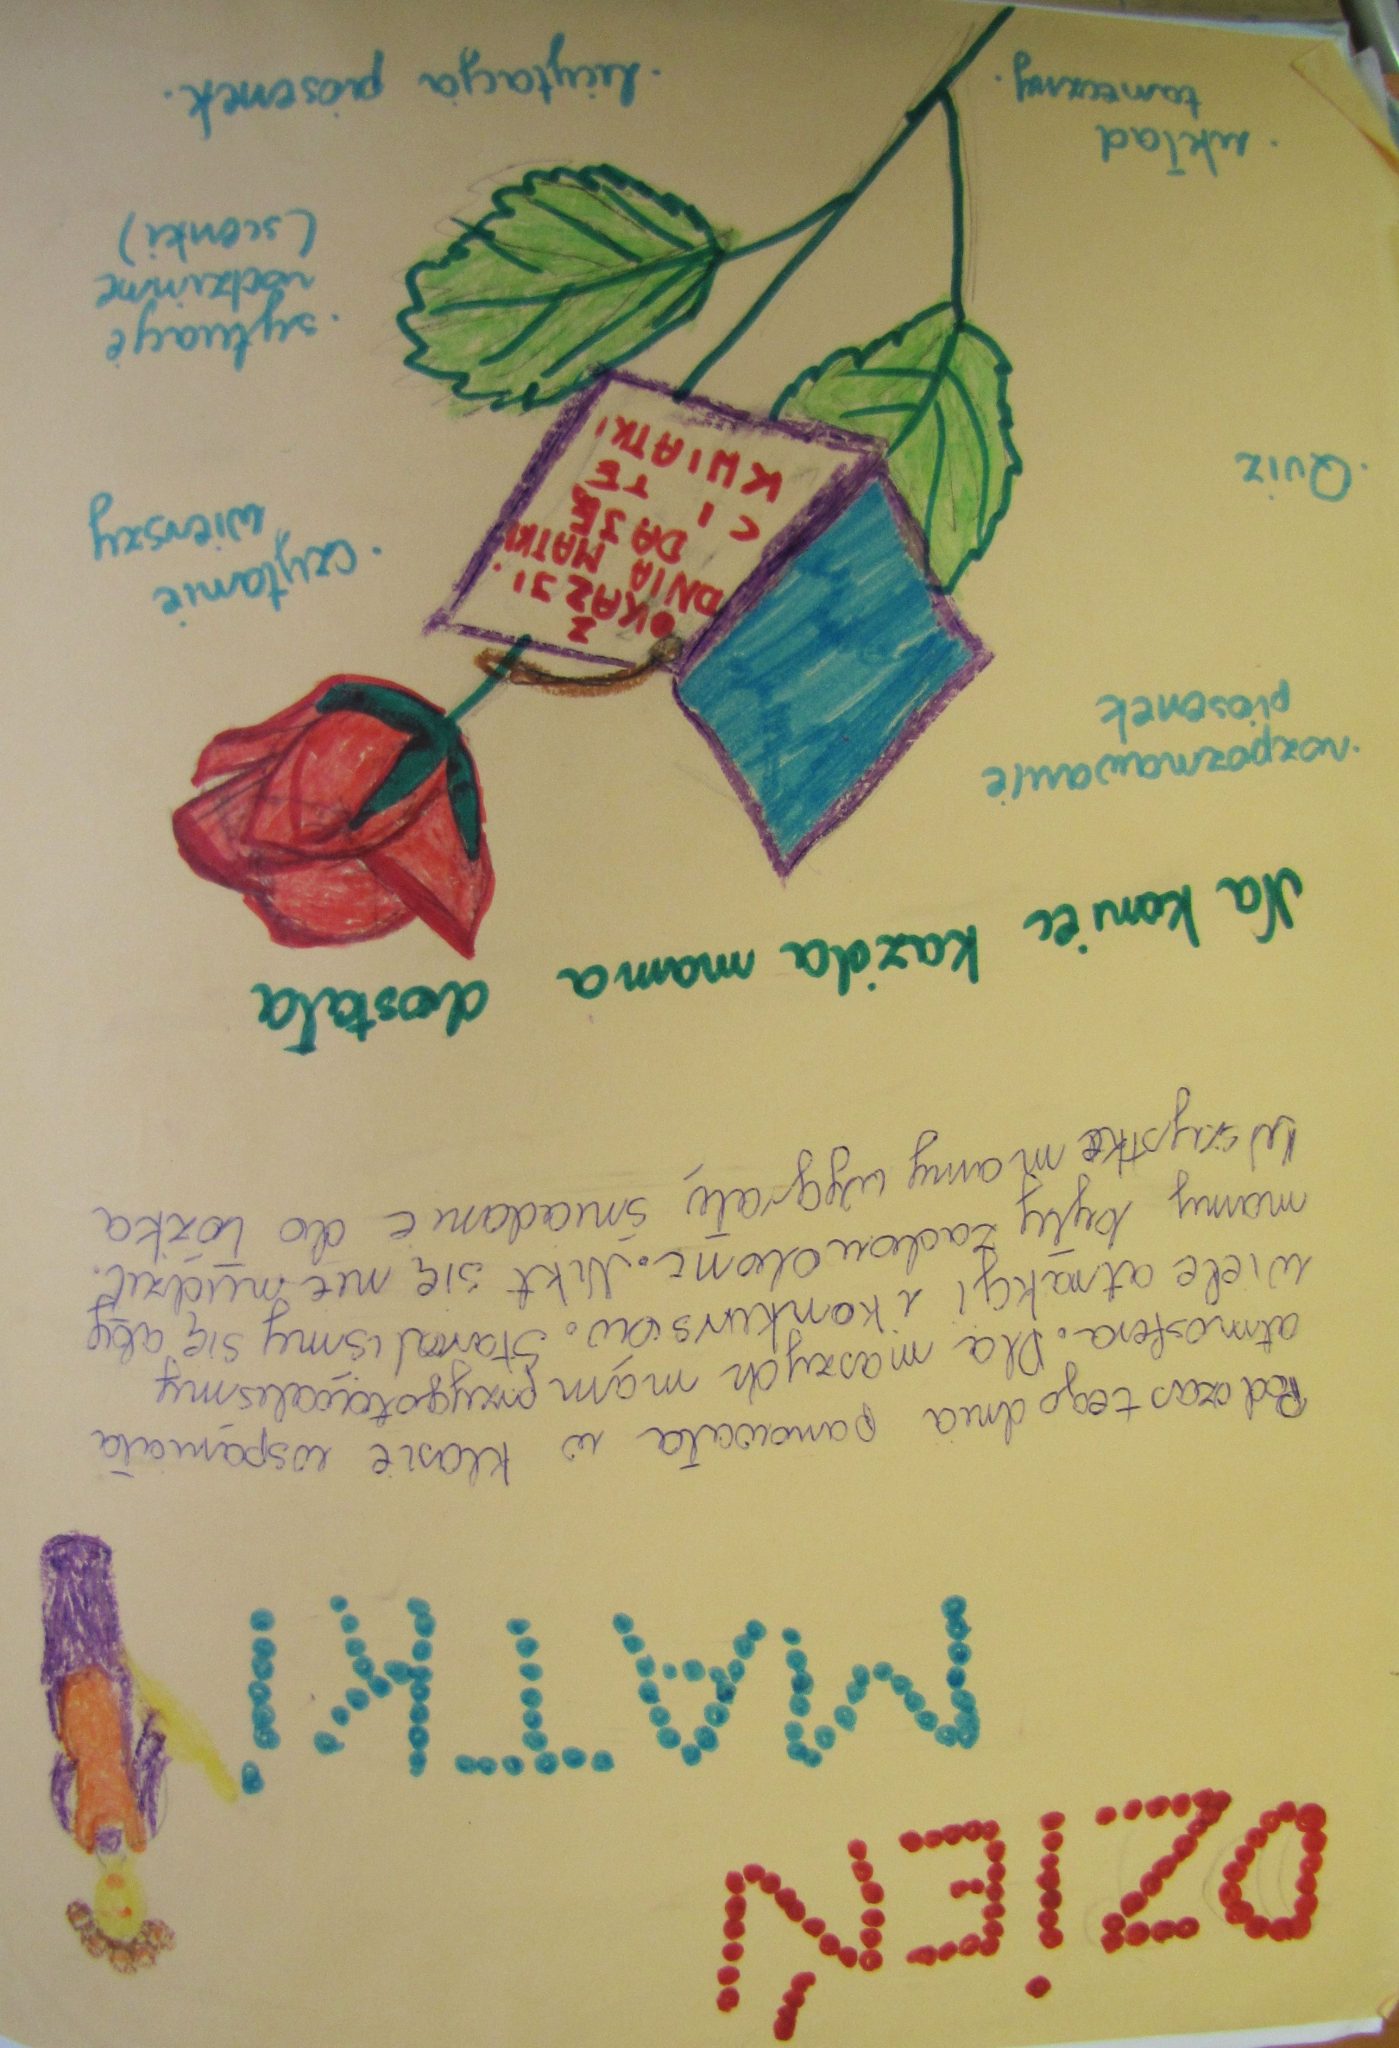 DZIEŃ
MATKI
Podczas tego dnia panowała w klasie wspaniała
atmosfera. Dla naszych mam przygotowaliśmy
wiele atrakcji i konkursów. Staraliśmy się aby
mamy były zadowolone. Nikt się nie nudził.
Wszystkie mamy wygrały śniadanie do łóżka
Na koniec każda mama dostała
· rozpoznawanie
piosenek
· Quiz
· układ
taneczny
Z
OKAZJI
DNIA MATKI
DAJĘ
CI TE
KWIATKI
· czytanie
wierszy
· sytuacje
rodzinne
(scenki)
· licytacja piosenek.